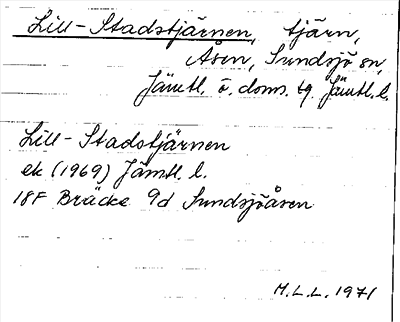 Lill-Stadstjärnen, tjärn,
Åsen, Sundsjö sn,
Jämtl. ö. doms. tg. Jämtl. l.
Lill-Stadstjärnen
ek (1969) Jämtl l.
18F Bräcke 9d Sundsjöåsen
M.L.L. 1971